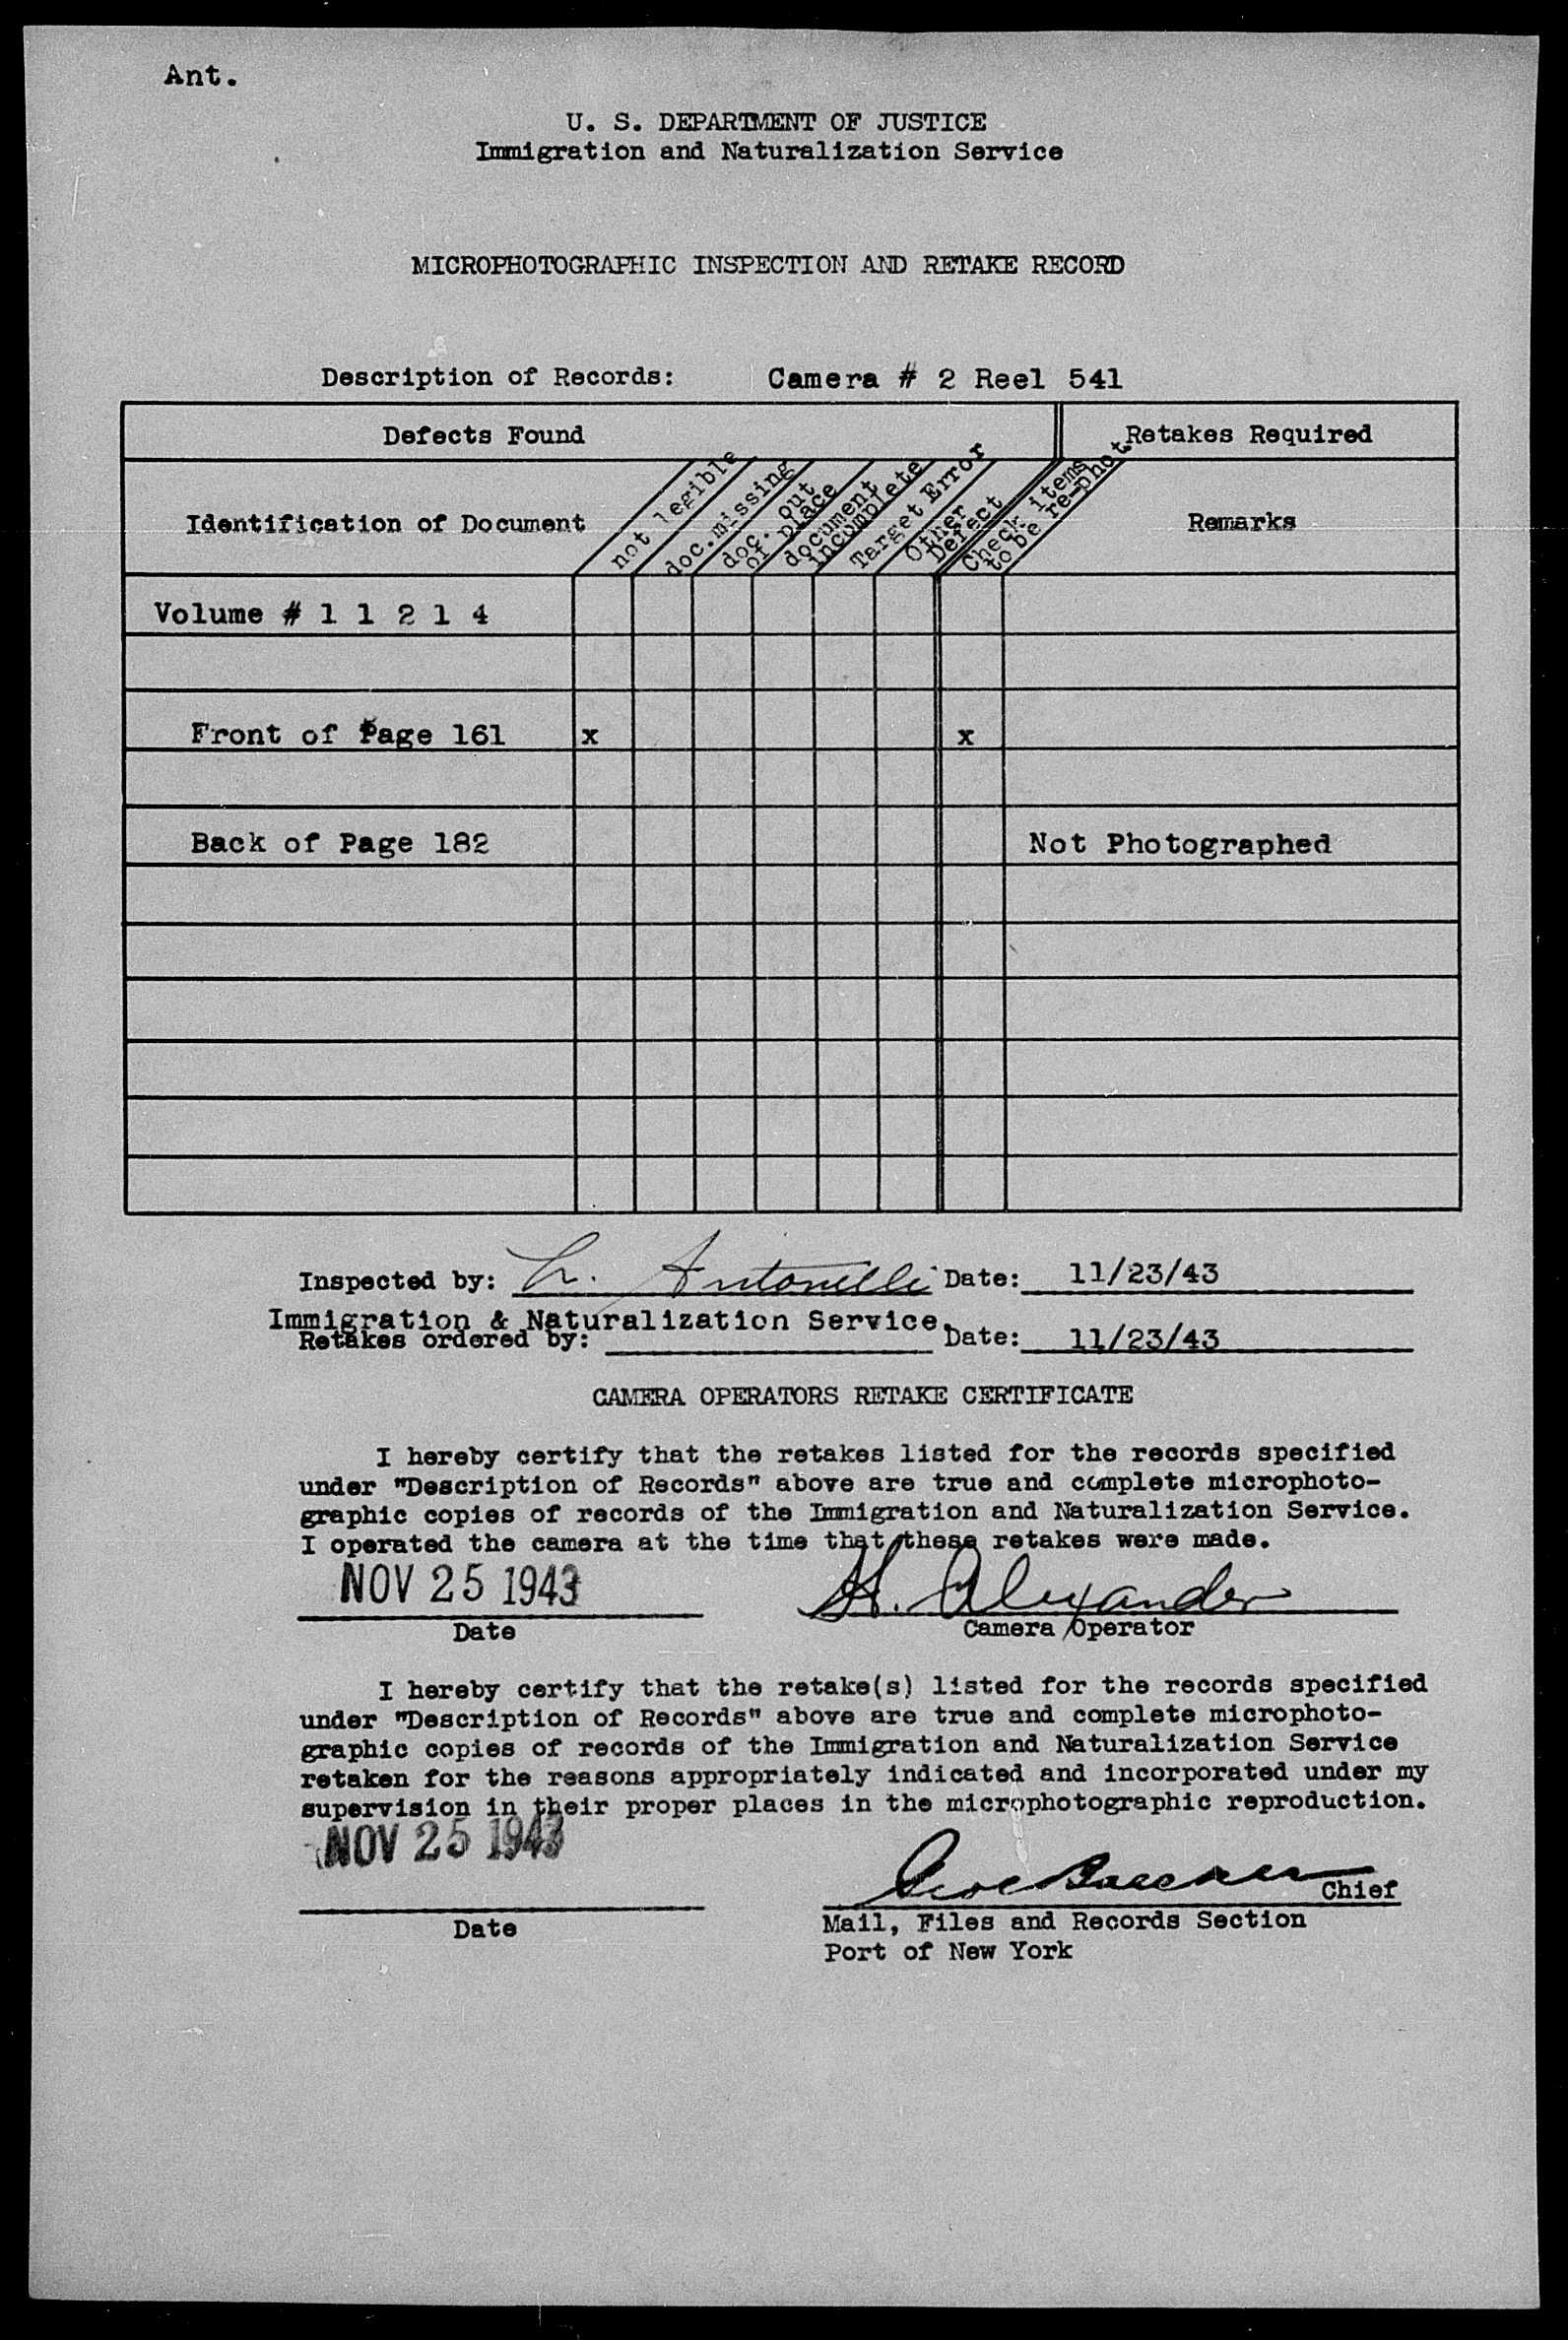 Ant.
U. S. DEPARTMENT OF JUSTICE
Immigration and Naturalization Service
MICROPHOTOGRAPHIC INSPECTION AND RETAKE RECORD
Description of Records: Camera # 2 Reel 541
Defects Found Retakes Required
Identification of Document not legible doc.missing doc. out of place document incomplete Target Error Other Defect Check items to be re-phot. Remarks
Volume # 1 1 2 1 4
Front of Page 161 x x
Back of Page 182 Not Photographed
Inspected by: L. Antonelli Date: 11/23/43
Immigration & Naturalization Service.
Retakes ordered by: Date: 11/23/43
CAMERA OPERATORS RETAKE CERTIFICATE
I hereby certify that the retakes listed for the records specified
under "Description of Records" above are true and complete microphoto-
graphic copies of records of the Immigration and Naturalization Service.
I operated the camera at the time that these retakes were made.
NOV 25 1943 H. Alexander
Date Camera Operator
I hereby certify that the retake(s) listed for the records specified
under "Description of Records" above are true and complete microphoto-
graphic copies of records of the Immigration and Naturalization Service
retaken for the reasons appropriately indicated and incorporated under my
supervision in their proper places in the microphotographic reproduction.
NOV 25 1943
Chief
Date Mail, Files and Records Section
Port of New York